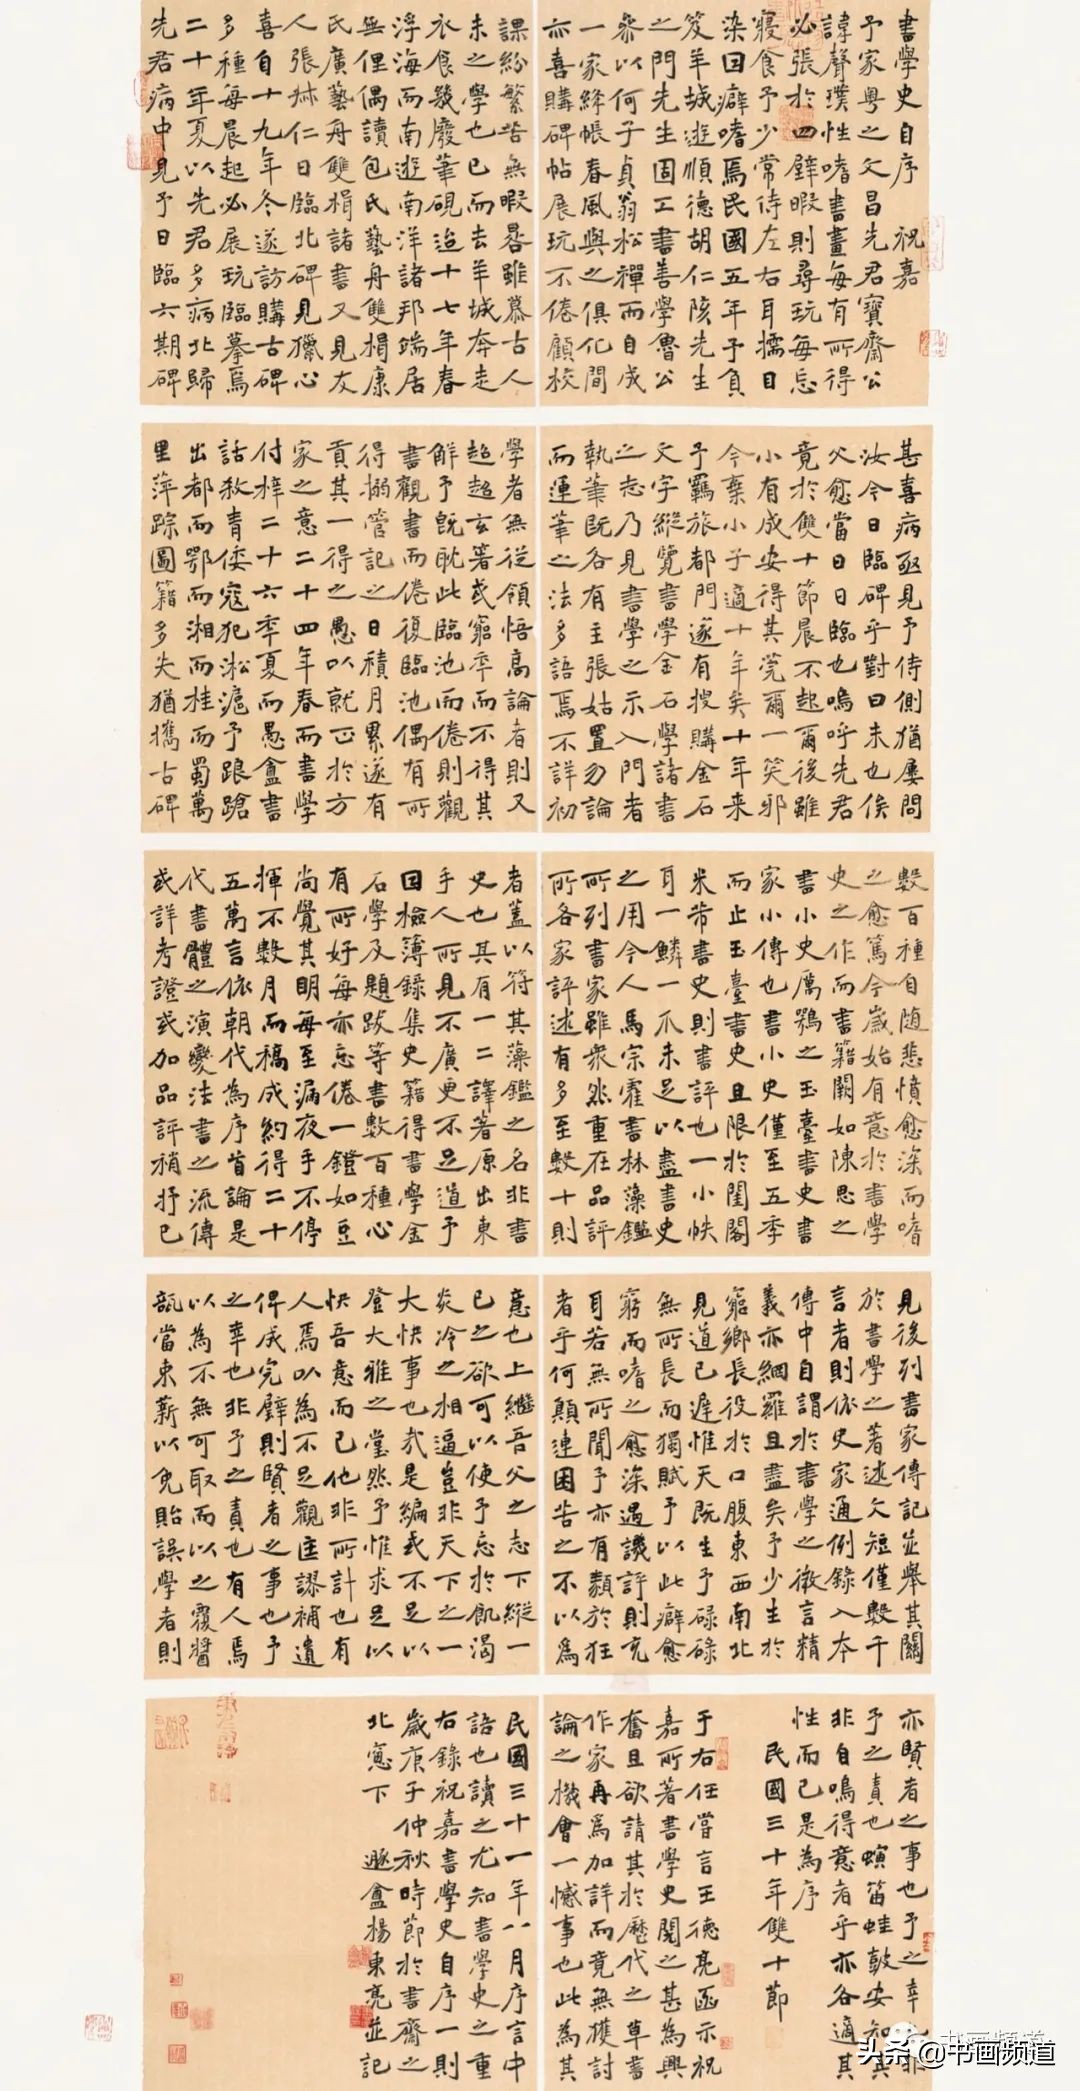 書學史自序 祝嘉
予家粤之文昌先君寶齋公
諱聲璞性嗜書畫每有所得
必張於四壁暇則尋玩每忘
寢食予少常侍左右耳擩目
染因癖嗜焉民國五年予負
笈羊城遊順德胡仁陔先生
之門先生固工書善學魯公
參以何子貞翁松禪而自成
一家絳帳春風與之俱化間
亦喜購碑帖展玩不倦顧校
課紛繁苦無暇晷雖慕古人
未之學也已而去羊城奔走
衣食幾廢筆硯迨十七年春
浮海而南遊南洋諸邦端居
無俚偶讀包氏藝舟雙楫康
氏廣藝舟雙楫諸書又見友
人張叔仁日臨北碑見獵心
喜自十九年冬遂訪購古碑
多種每晨起必展玩臨摹焉
二十年夏以先君多病北歸
先君病中見予日臨六期碑
甚喜病亟見予侍側猶屢問
汝今日臨碑乎對曰未也俟
父愈當日日臨也嗚呼先君
竟於雙十節晨不起爾後雖
小有成安得其莞爾一笑邪
今棄小子適十年矣十年来
予羈旅都門遂有搜購金石
文字縱覽書學金石學諸書
之志乃見書學之示入門者
執筆既各有主張姑置勿論
而運筆之法多語焉不詳初
學者無從領悟高論者則又
超超玄箸或窮年而不得其
解予既耽此臨池而倦則觀
書觀書而倦復臨池偶有所
得搦管記之日積月累遂有
貢其一得之愚以就正於方
家之意二十四年春而書學
付梓二十六年夏而愚盦書
話殺青倭寇犯淞滬予踉蹌
出都而鄂而湘而桂而蜀萬
里萍踪圖籍多失猶攜古碑
數百種自随悲憤愈深而嗜
之愈篤今歲始有意於書學
史之作而書籍闕如陳思之
書小史厲鶚之玉臺書史書
家小傳也書小史僅至五季
而止玉臺書史且限於閨閣
米芾書史則書評也一小帙
耳一鱗一爪未足以盡書史
之用今人馬宗霍書林藻鑑
所列書家雖衆然重在品評
所各家評述有多至數十則
者蓋以符其藻鑑之名非書
史也其有一二譯著原出東
手人所見不廣更不足道予
因檢簿錄集史籍得書學金
石學及題跋等書數百種心
有所好每亦忘倦一鐙如豆
尚覺其明每至漏夜手不停
揮不數月而稿成約得二十
五萬言依朝代為序首論是
代書體之演變法書之流傳
或詳考證或加品評稍抒己
見後列書家傳記並舉其關
於書學之著述文短僅數千
言者則依史家通例錄入本
傳中自謂於書學之微言精
義亦網羅且盡矣予少生於
窮鄉長役於口腹東西南北
見道已遲惟天既生予碌碌
無所長而獨賦予以此癖愈
窮而嗜之愈深遇譏評則充
耳若無所聞予亦有類於狂
者乎何顛連困苦之不以為
意也上繼吾父之志下縱一
已之欲可以使予忘於飢渴
炎冷之相逼豈非天下之一
大快事也哉是編或不足以
登大雅之堂然予惟求足以
快吾意而已他非所計也有
人焉以為不足觀匡謬補遺
俾成完璧則賢者之事也予
之幸也非予之責也有人焉
以為不無可取而以之覆醬
瓿當束薪以免貽誤學者則
亦賢者之事也予之幸也非
予之責也螾笛蛙鼓安知其
非自鳴得意者乎亦各適其
性而已是為序
民國三十年雙十節
于右任嘗言王德亮函示祝
嘉所著書學史閱之甚為興
奮且欲請其於歷代之草書
作家再為加詳而竟無獲討
論之機會一憾事也此為其
民國三十一年八月序言中
語也讀之尤知書學史之重
右錄祝嘉書學史自序一則
歲庚子仲秋時節於書齋之
北窗下 遯盦楊東亮並記
书画频道
头条 @书画频道